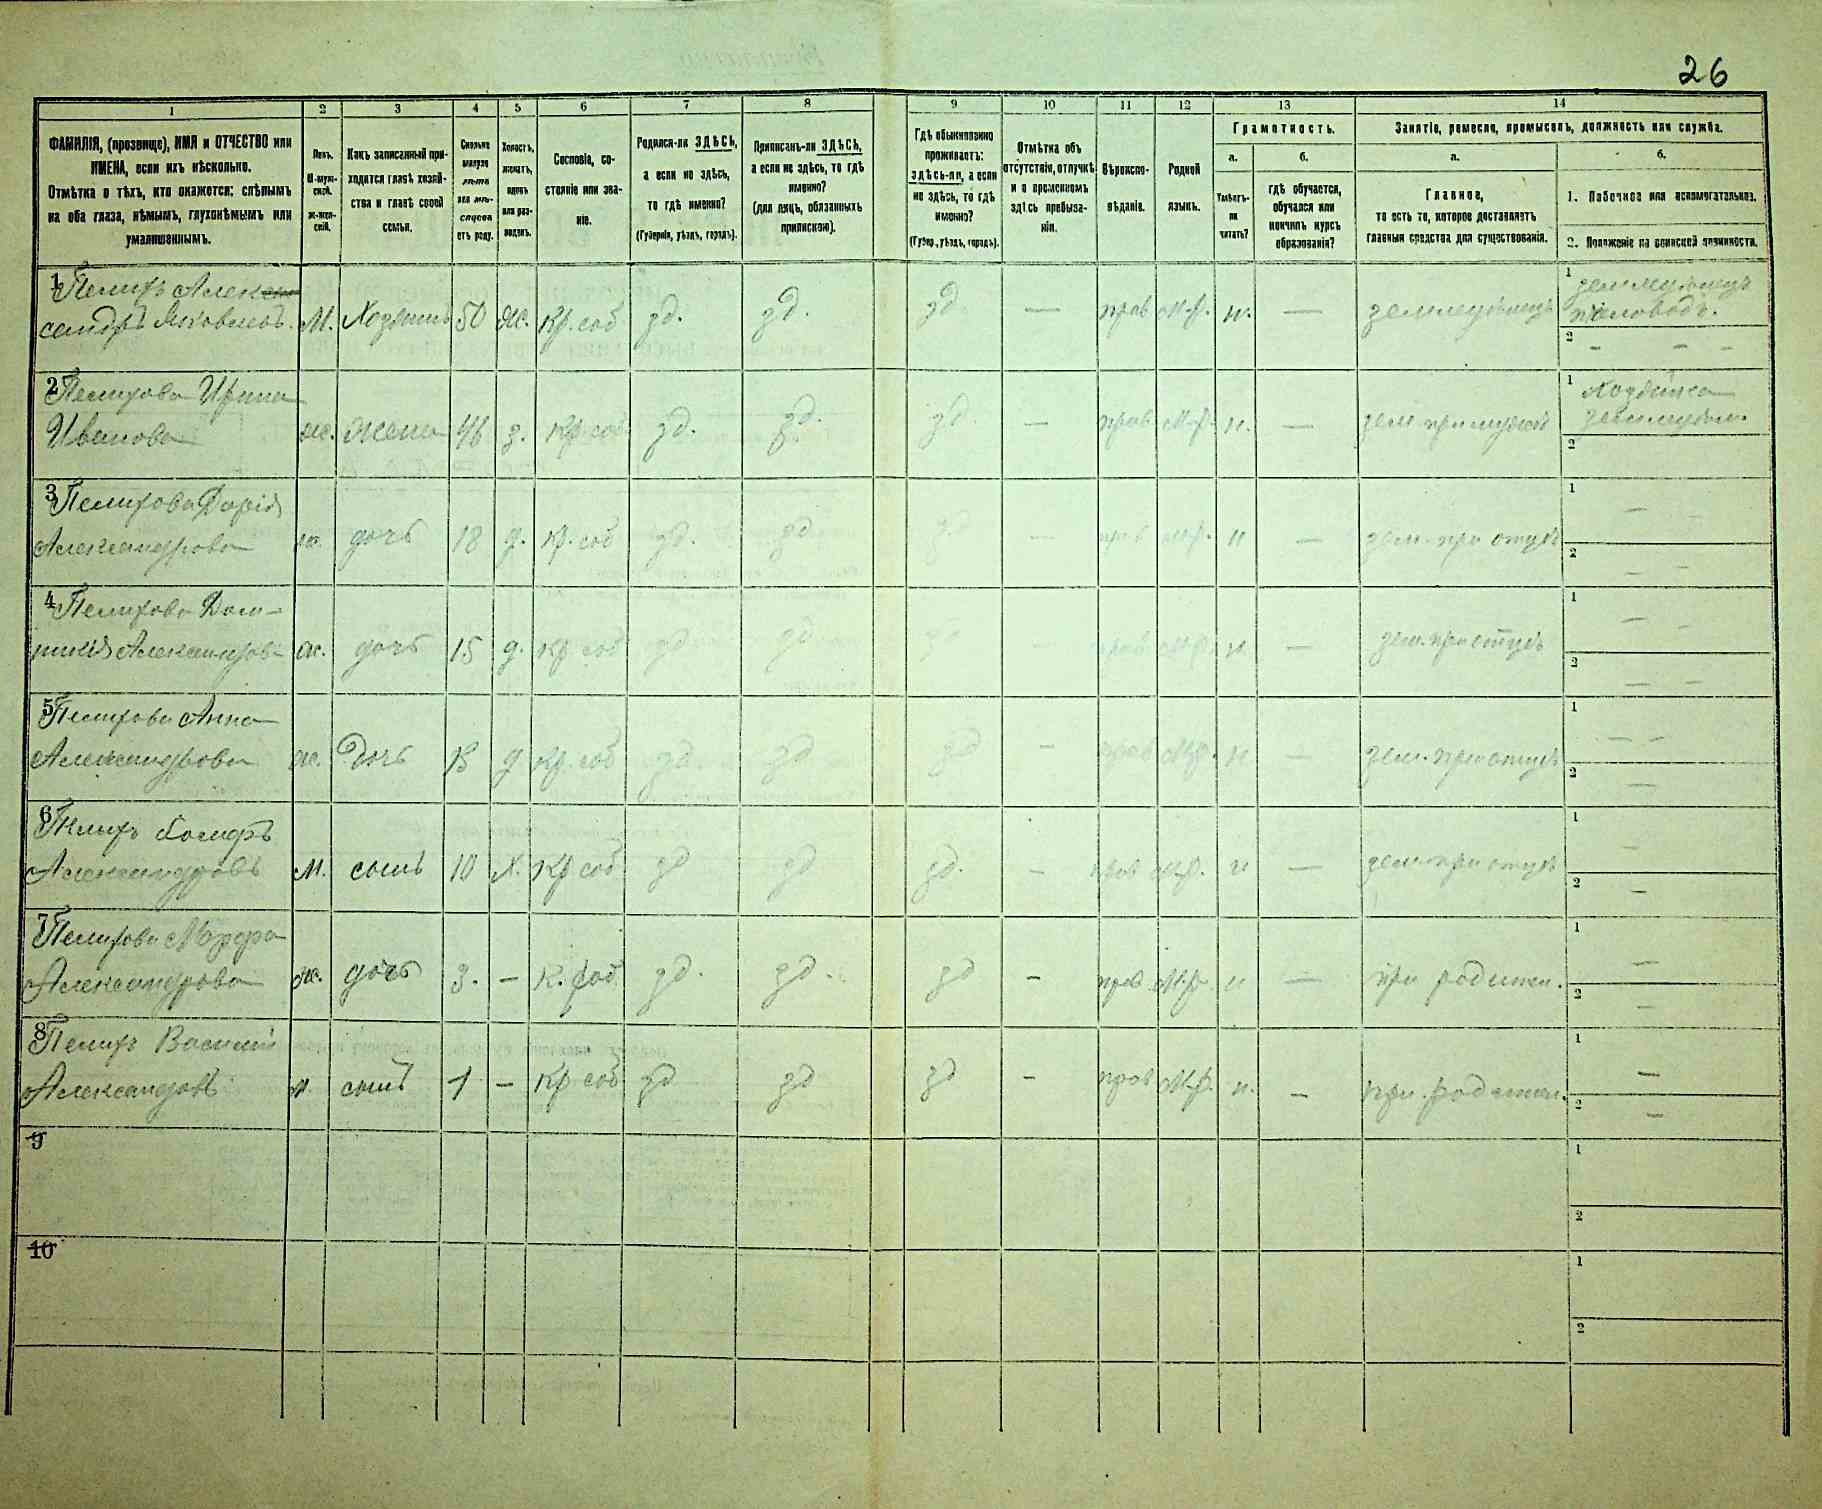 26
1 2 3 4 5 6 7 8 9 10 11 12 13 14
ФАМИЛІЯ, (прозвище), ИМЯ и ОТЧЕСТВО или
ИМЕНА, если ихъ нѣсколько.
Отмѣтка о тѣхъ, кто окажется: слѣпымъ
на оба глаза, нѣмымъ, глухонѣмымъ или
умалишеннымъ.
Полъ.
М-муж-
ской.
ж-жен-
скій.
Какъ записанный при-
ходится главѣ хозяй-
ства и главѣ своей
семьи.
Сколько
минуло
лѣтъ
или мѣ-
сяцевъ
отъ роду.
Холостъ,
женатъ,
вдовъ
или раз-
веденъ.
Сословіе, со-
стояніе или зва-
ніе.
Родился-ли ЗДѢСЬ,
а если не здѣсь,
то гдѣ именно?
(Губернія, уѣздъ, городъ).
Приписанъ-ли ЗДѢСЬ,
а если не здѣсь, то гдѣ
именно?
(для лицъ, обязанныхъ
припискою).
Гдѣ обыкновенно
проживаетъ:
здѣсь-ли, а если
не здѣсь, то гдѣ
именно?
(Губер., уѣздъ, городъ).
Отмѣтка объ
отсутствіи, отлучкѣ
и о временномъ
здѣсь пребыва-
ніи.
Вѣроиспо-
вѣданіе.
Родной
языкъ.
Грамотность.
а. б.
Умѣетъ-
ли
читать?
гдѣ обучается,
обучался или
кончилъ курсъ
образованія?
Занятіе, ремесло, промыселъ, должность или служба.
а. б.
Главное,
то есть то, которое доставляетъ
главныя средства для существованія.
1. Побочное или вспомогательное.
2. Положеніе по воинской повинности.
1 Пелихъ Алек
сандръ Яковлевъ. М. Хозяинъ 50 ж. Кр. соб зд. зд. зд — прав М.р. н. — землед&#1123;лецъ
1 земледѣлецъ
пчеловодъ.
2 – – –
2 Пелихова Ирина
Иванова ж. жена 46 з. Кр. соб. зд. зд. зд. прав М.р. н. — зем при мужѣ
1 Хозяйка
2
3 Пелихова Дарія
Александрова ж. дочь 18 д. Кр. соб зд. зд зд — прав м.р. н — зем. при отцѣ
1 — –
2 – –
4 Пелихова Дом-
никія Александрова ж. дочь 15 д. Кр соб зд зд зд — прав М.р. н. — зем. при отцѣ
1 — –
2 — –
5 Пелихова Анна
Александрова ж. Дочь 13 д Кр. соб зд. зд зд – прав М.р. н — зем. при отцѣ
1 — –
2 —
6 Пелихъ
Александровъ М. сынъ 10 х. Кр соб зд зд зд. – прав М.р. н — зем. при отцѣ
1 –
2 –
7 Пелихова Марфа
Александрова ж. дочь 3. – К. соб. зд. зд. зд – прав М.р. н — при родител.
1 —
2 –
8 Пелихъ Василій
Александровъ м. сынъ 1 – Кр соб зд зд зд – прав М.р. н. – при. родител.
1 —
2 —
9
1
2
10
1
2